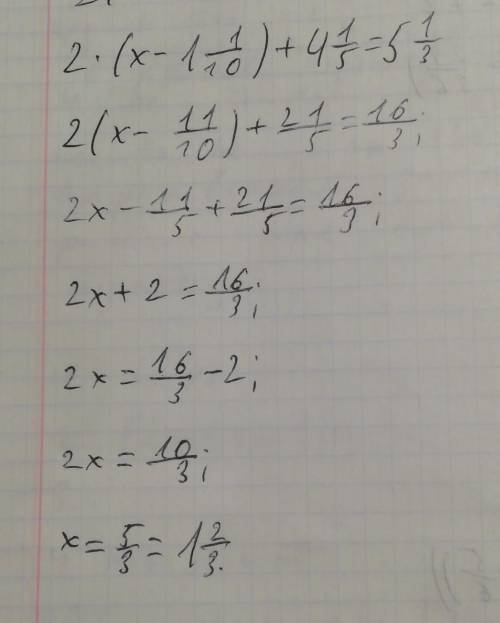 2·(x - 1 1/10) + 4 1/5 = 5 1/3
2(x - 11/10) + 21/5 = 16/3;
2x - 11/5 + 21/5 = 16/3;
2x + 2 = 16/3;
2x = 16/3 - 2;
2x = 10/3;
x = 5/3 = 1 2/3.